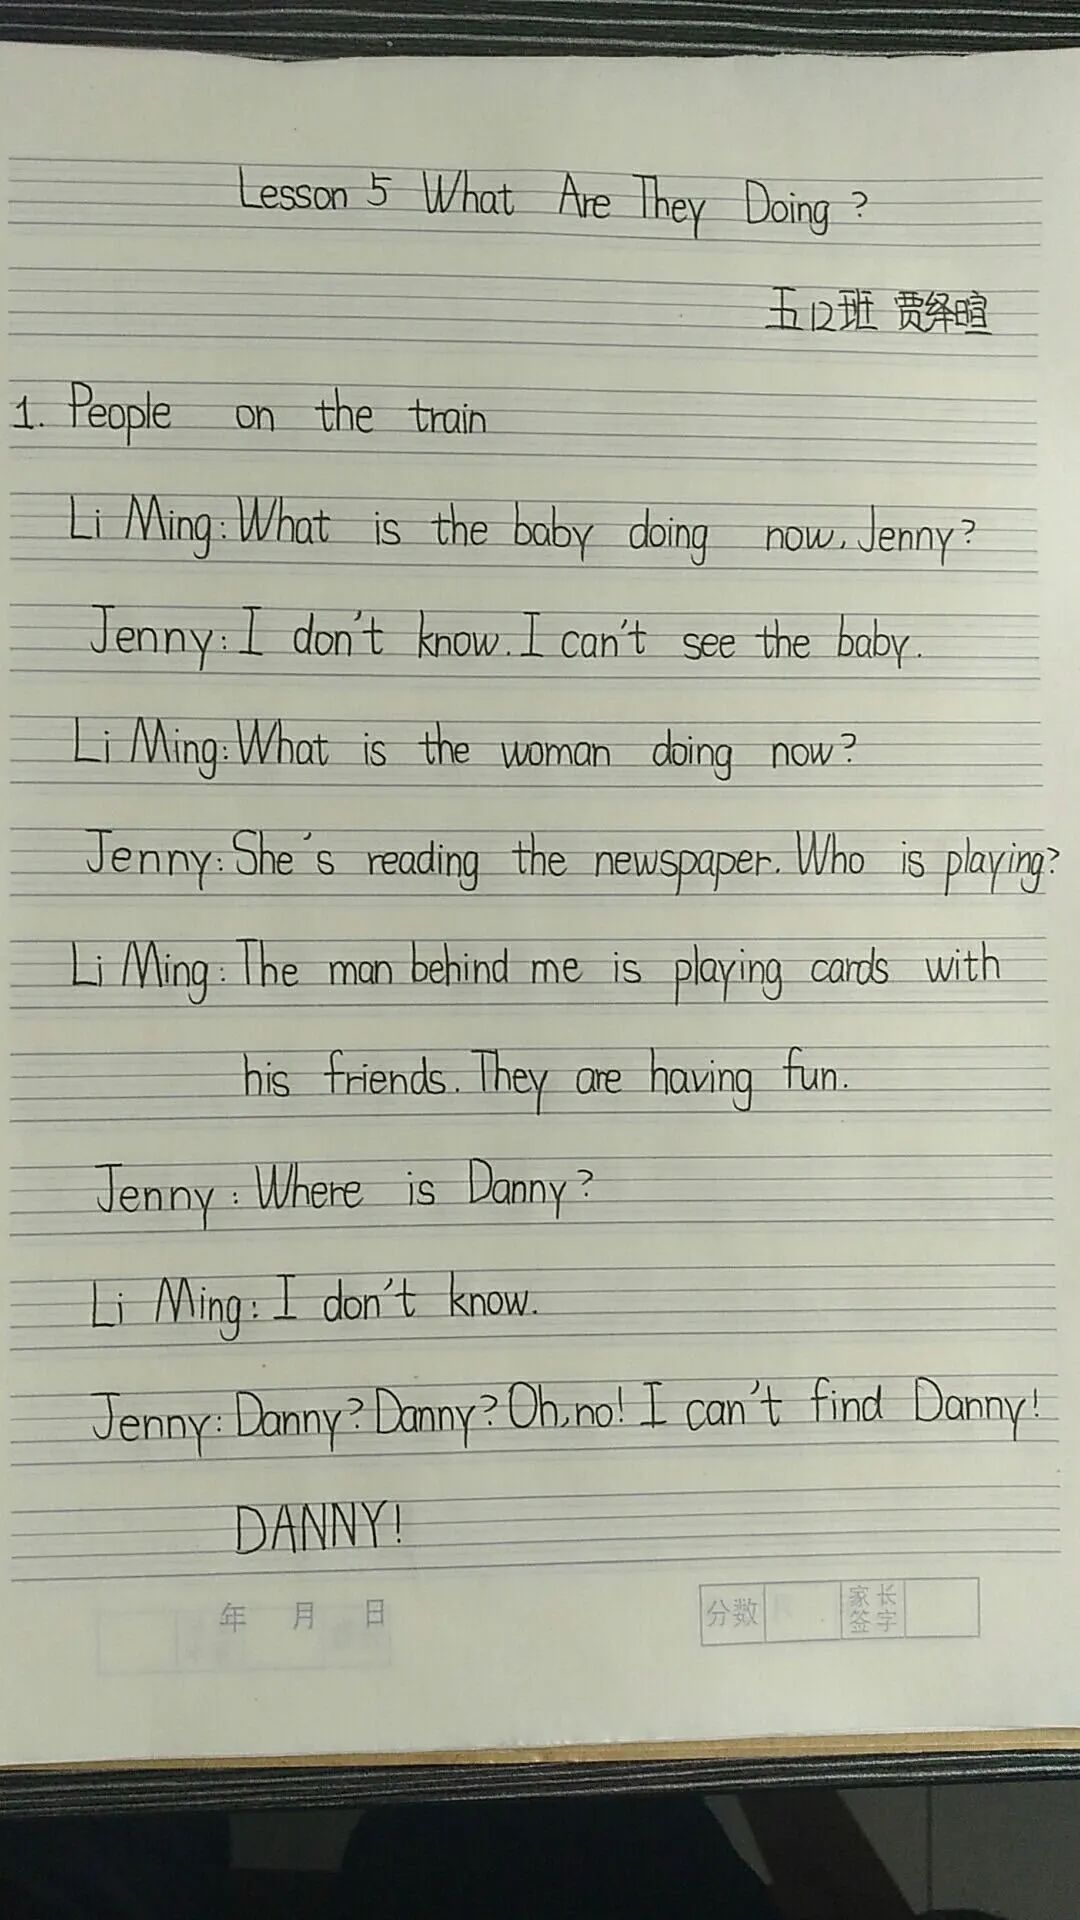 Lesson 5 What Are They Doing?
五12班 贾绎暄
1. People on the train
Li Ming: What is the baby doing now, Jenny?
Jenny: I don't know. I can't see the baby.
Li Ming: What is the woman doing now?
Jenny: She's reading the newspaper. Who is playing?
Li Ming: The man behind me is playing cards with
his friends. They are having fun.
Jenny: Where is Danny?
Li Ming: I don't know.
Jenny: Danny? Danny? Oh, no! I can't find Danny!
DANNY!
年 月 日
分数 家长签字